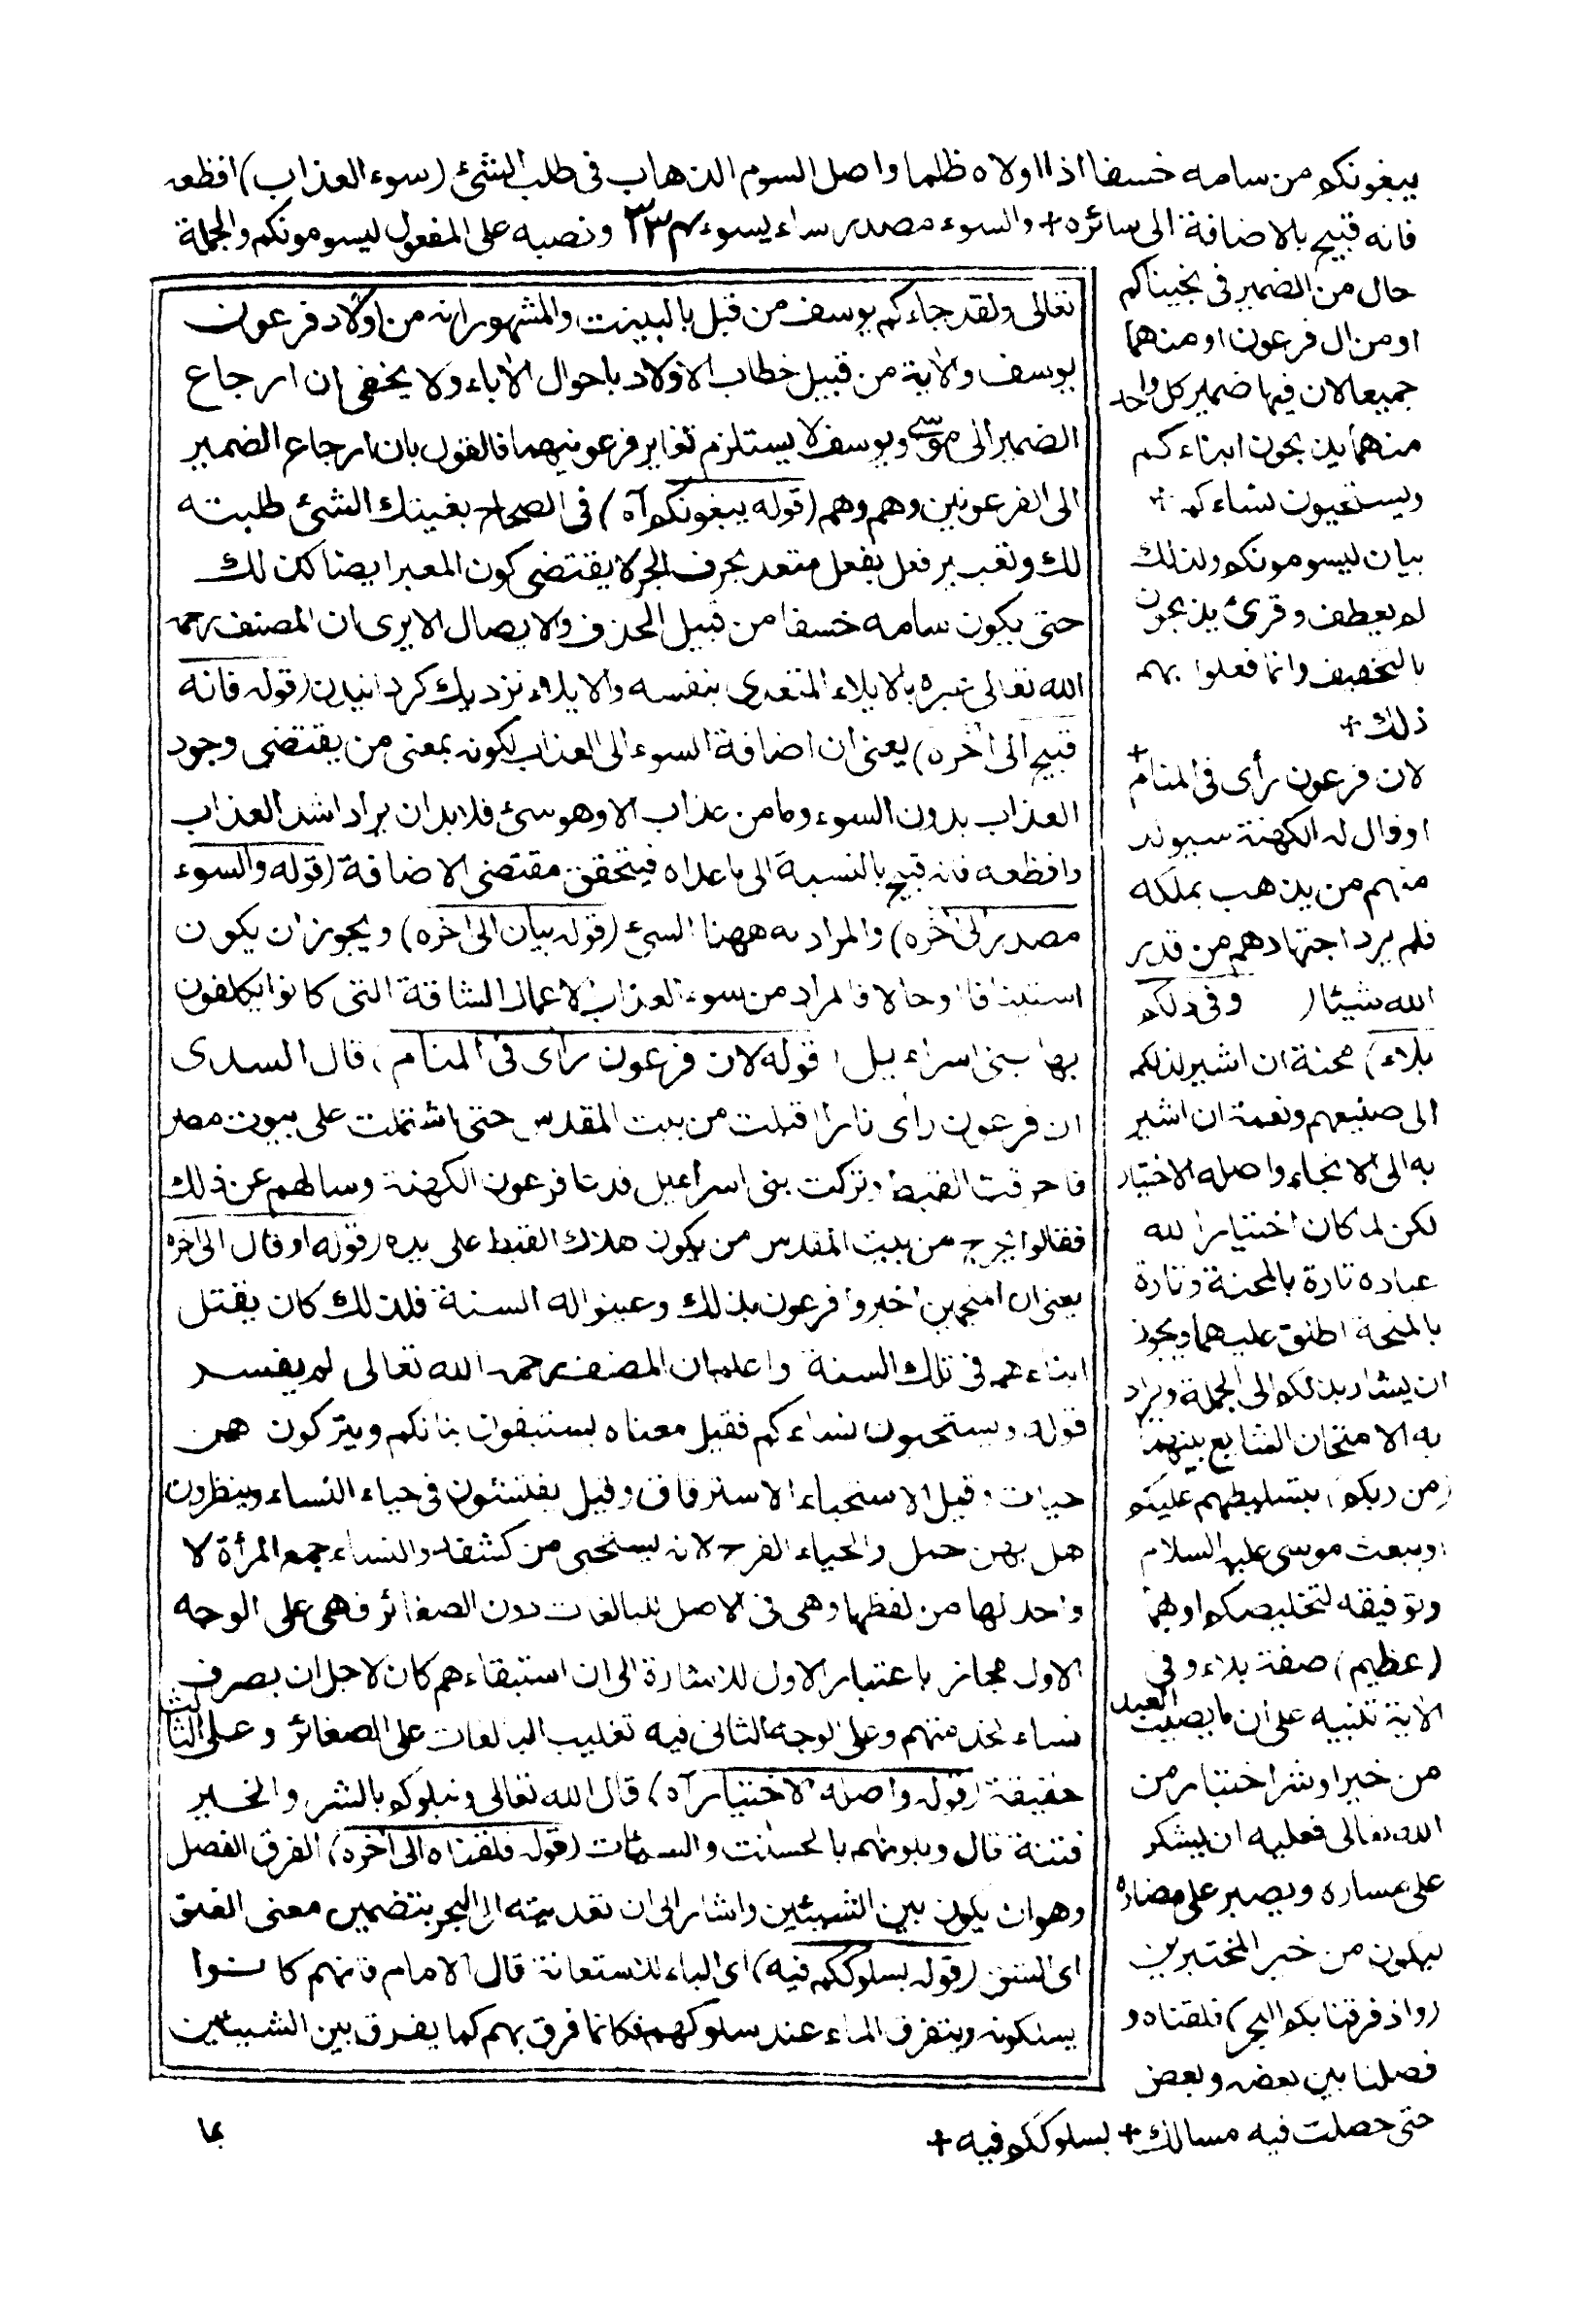 يبغونكم من سامه خسفا اذا اولاه ظلما واصل السوم الذهاب فى طلب الشئ (سوء العذاب) افظعه
فانه قبيح بالاضافة الى سائره + والسوء مصدر ساء يسوء ۳۳۳ ونصبه على المفعول ليسومونكم والجملة
حال من الضمير فى نجيناكم
او من ال فرعون او منهما
جميعا لان فيها ضمير كل واحد
منهما يذبحون ابناءكم
ويستحيون نساءكم +
بيان ليسومونكم ولذلك
لم يعطف وقرئ يذبحون
بالتخفيف وانما فعلوا بهم
ذلك +
لان فرعون رأى فى المنام +
او قال له الكهنة سيولد
منهم من يذهب بملكه
فلم يرد اجتهادهم من قدر
الله شيئا (وفى ذلكم
بلاء) محنة ان اشير بذلكم
الى صنيعهم ونعمة ان اشير
به الى الانجاء واصله الاختبار
لكن لما كان اختبار الله
عباده تارة بالمحنة وتارة
بالمنحة اطلق عليهما ويجوز
ان يشار بذلكم الى الجملة ويراد
به الامتحان الشايع بينهما
(من ربكم) بتسليطهم عليكم
او ببعث موسى عليه السلام
وتوفيقه لتخليصكم او بهما
(عظيم) صفة بلاء وفى
الآية تنبيه على ان ما يصيب العبد
من خير او شر اختبار من
الله تعالى فعليه ان يشكر
على مساره ويصبر على مضاره
ليكون من خير المختبرين
(واذ فرقنا بكم البحر) فلقناه و
فصلنا بين بعضه وبعض
حتى حصلت فيه مسالك + بسلوككم فيه +
تعالى ولقد جاءكم يوسف من قبل بالبينت والمشهور انه من اولاد فرعون
يوسف والآية من قبيل خطاب الاولاد باحوال الآباء ولا يخفى ان ارجاع
الضمير الى موسى ويوسف لا يستلزم تغاير فرعونيهما فالقول بان ارجاع الضمير
الى الفرعونين وهم وهم (قوله يبغونكم آه) فى الصحاح بغيتك الشئ طلبته
لك وتعبير فعل بفعل متعد بحرف الجر لا يقتضى كون المعبر ايضا كذلك
حتى يكون سامه خسفا من قبيل الحذف والايصال الا يرى ان المصنف رحمه
الله تعالى عبره بالايلاء المتعدى بنفسه والايلاء نزديك كردانيدن (قوله فانه
قبيح الى آخره) يعنى ان اضافة السوء الى العذاب لكونه بمعنى من يقتضى وجود
العذاب بدون السوء وما من عذاب الا وهو سئ فلا بد ان يراد اشد العذاب
وافظعه فانه قبيح بالنسبة الى ما عداه فيتحقق مقتضى الاضافة (قوله والسوء
مصدر الى آخره) والمراد به ههنا السئ (قوله بيان الى آخره) ويجوز ان يكون
استينافا او حالا فالمراد من سوء العذاب الاعمال الشاقة التى كانوا يكلفون
بها بنى اسراءيل (قوله لان فرعون رأى فى المنام) قال السدى
ان فرعون رأى نارا اقبلت من بيت المقدس حتى اشتملت على بيوت مصر
فاحرقت القبط وتركت بنى اسرائيل فدعا فرعون الكهنة وسالهم عن ذلك
فقالوا يخرج من بيت المقدس من يكون هلاك القبط على يده (قوله او قال الى آخره
يعنى ان المنجمين اخبروا فرعون بذلك وعينوا له السنة فلذلك كان يقتل
ابناءهم فى تلك السنة واعلم ان المصنف رحمه الله تعالى لم يفسر
قوله ويستحيون نساءكم فقيل معناه يستبقون بناتكم ويتركون هن
حيات وقيل الاستحياء الاسترقاق وقيل يفتشون فى حياء النساء وينظرون
هل بهن حبل والحياء الفرج لانه يستحى من كشفه والنساء جمع المرأة لا
واحد لها من لفظها وهى فى الاصل للبالغات دون الصغائر فهى على الوجه
الاول مجاز باعتبار الاول للاشارة الى ان استبقاءهم كان لاجل ان يصرن
نساء لخدمتهم وعلى الوجه الثانى فيه تغليب البالغات على الصغائر وعلى الثالث
حقيقة (قوله واصله الاختبار آه) قال الله تعالى ونبلوكم بالشر والخير
فتنة قال وبلونهم بالحسنت والسيئات (قوله فلقناه الى آخره) الفرق الفصل
وهو ان يكون بين الشيئين واشار الى ان تعديته الى البحر بتضمين معنى الفلق
اى الشق (قوله بسلوككم فيه) اى الباء للاستعانة قال الامام فانهم كانوا
يسلكونه ويتفرق الماء عند سلوكهم فكانما فرق بهم كما يفرق بين الشيئين
بما